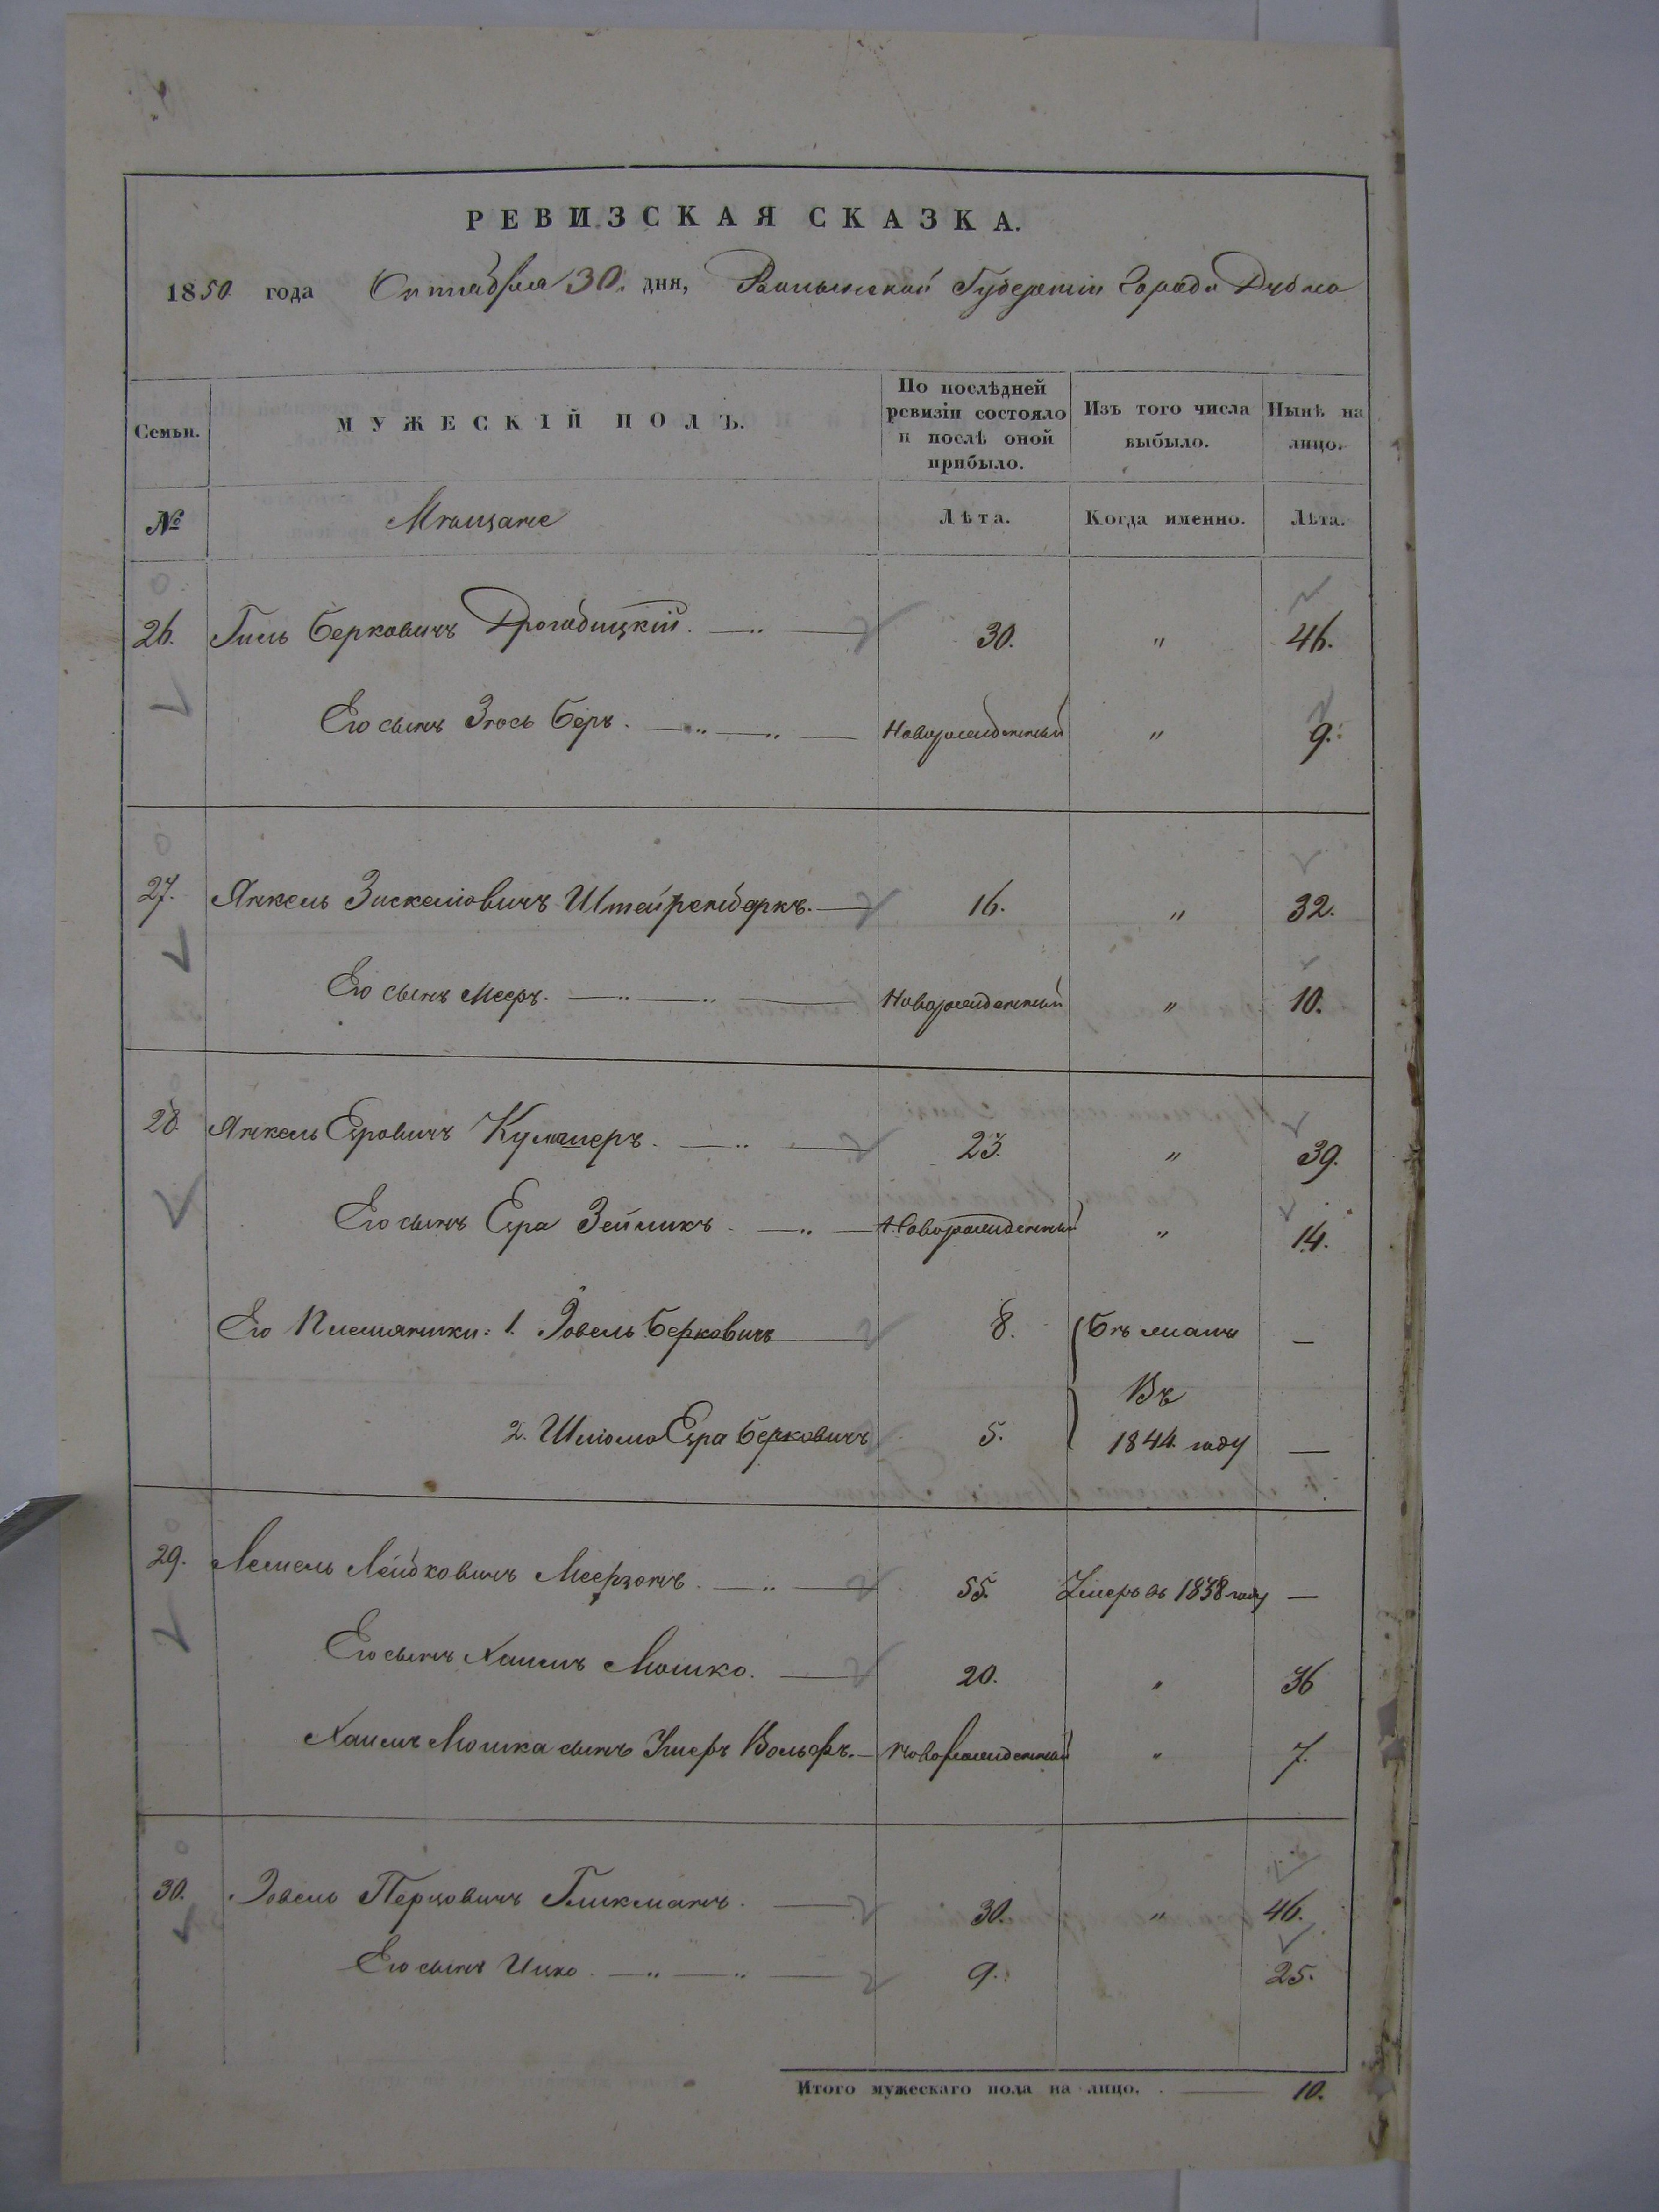 РЕВИЗСКАЯ СКАЗКА.
1850 года Октября 30. дня, Волынской Губерніи Города Дубно
Семьи. МУЖЕСКІЙ ПОЛЪ. По послѣдней ревизіи состояло и послѣ оной прибыло. Изъ того числа выбыло. Нынѣ на лицо.
№ Мѣщане Лѣта. Когда именно. Лѣта.
26. Гиль Берковичъ Дрогобицкій. 30. " 46.
Его сынъ Зюсь Беръ. Новорожденный " 9.
27. Янкель Зискелювичъ 16. " 32.
Его сынъ Мееръ. Новорожденный " 10.
28. Янкель Еровичъ Кулишеръ. 23. " 39.
Его сынъ Зейликъ Новорожденный " 14.
Его Племянники: 1. Іовель Берковичъ 8. Бѣжалъ —
Въ
2. Шліома Берковичъ 5. 1844 году —
29. Лемель Лейбковичъ Меерзонъ. 55. Умеръ въ 1838 году —
Его сынъ Хаимъ Мошко. 20. " 36
Хаимъ Мошка сынъ Вольфъ. Новорожденный " 7.
30. Іовель Перцовичъ Гликманъ. 30. " 46.
Его сынъ Ицко 9. 25.
Итого мужескаго пола на лицо. 10.